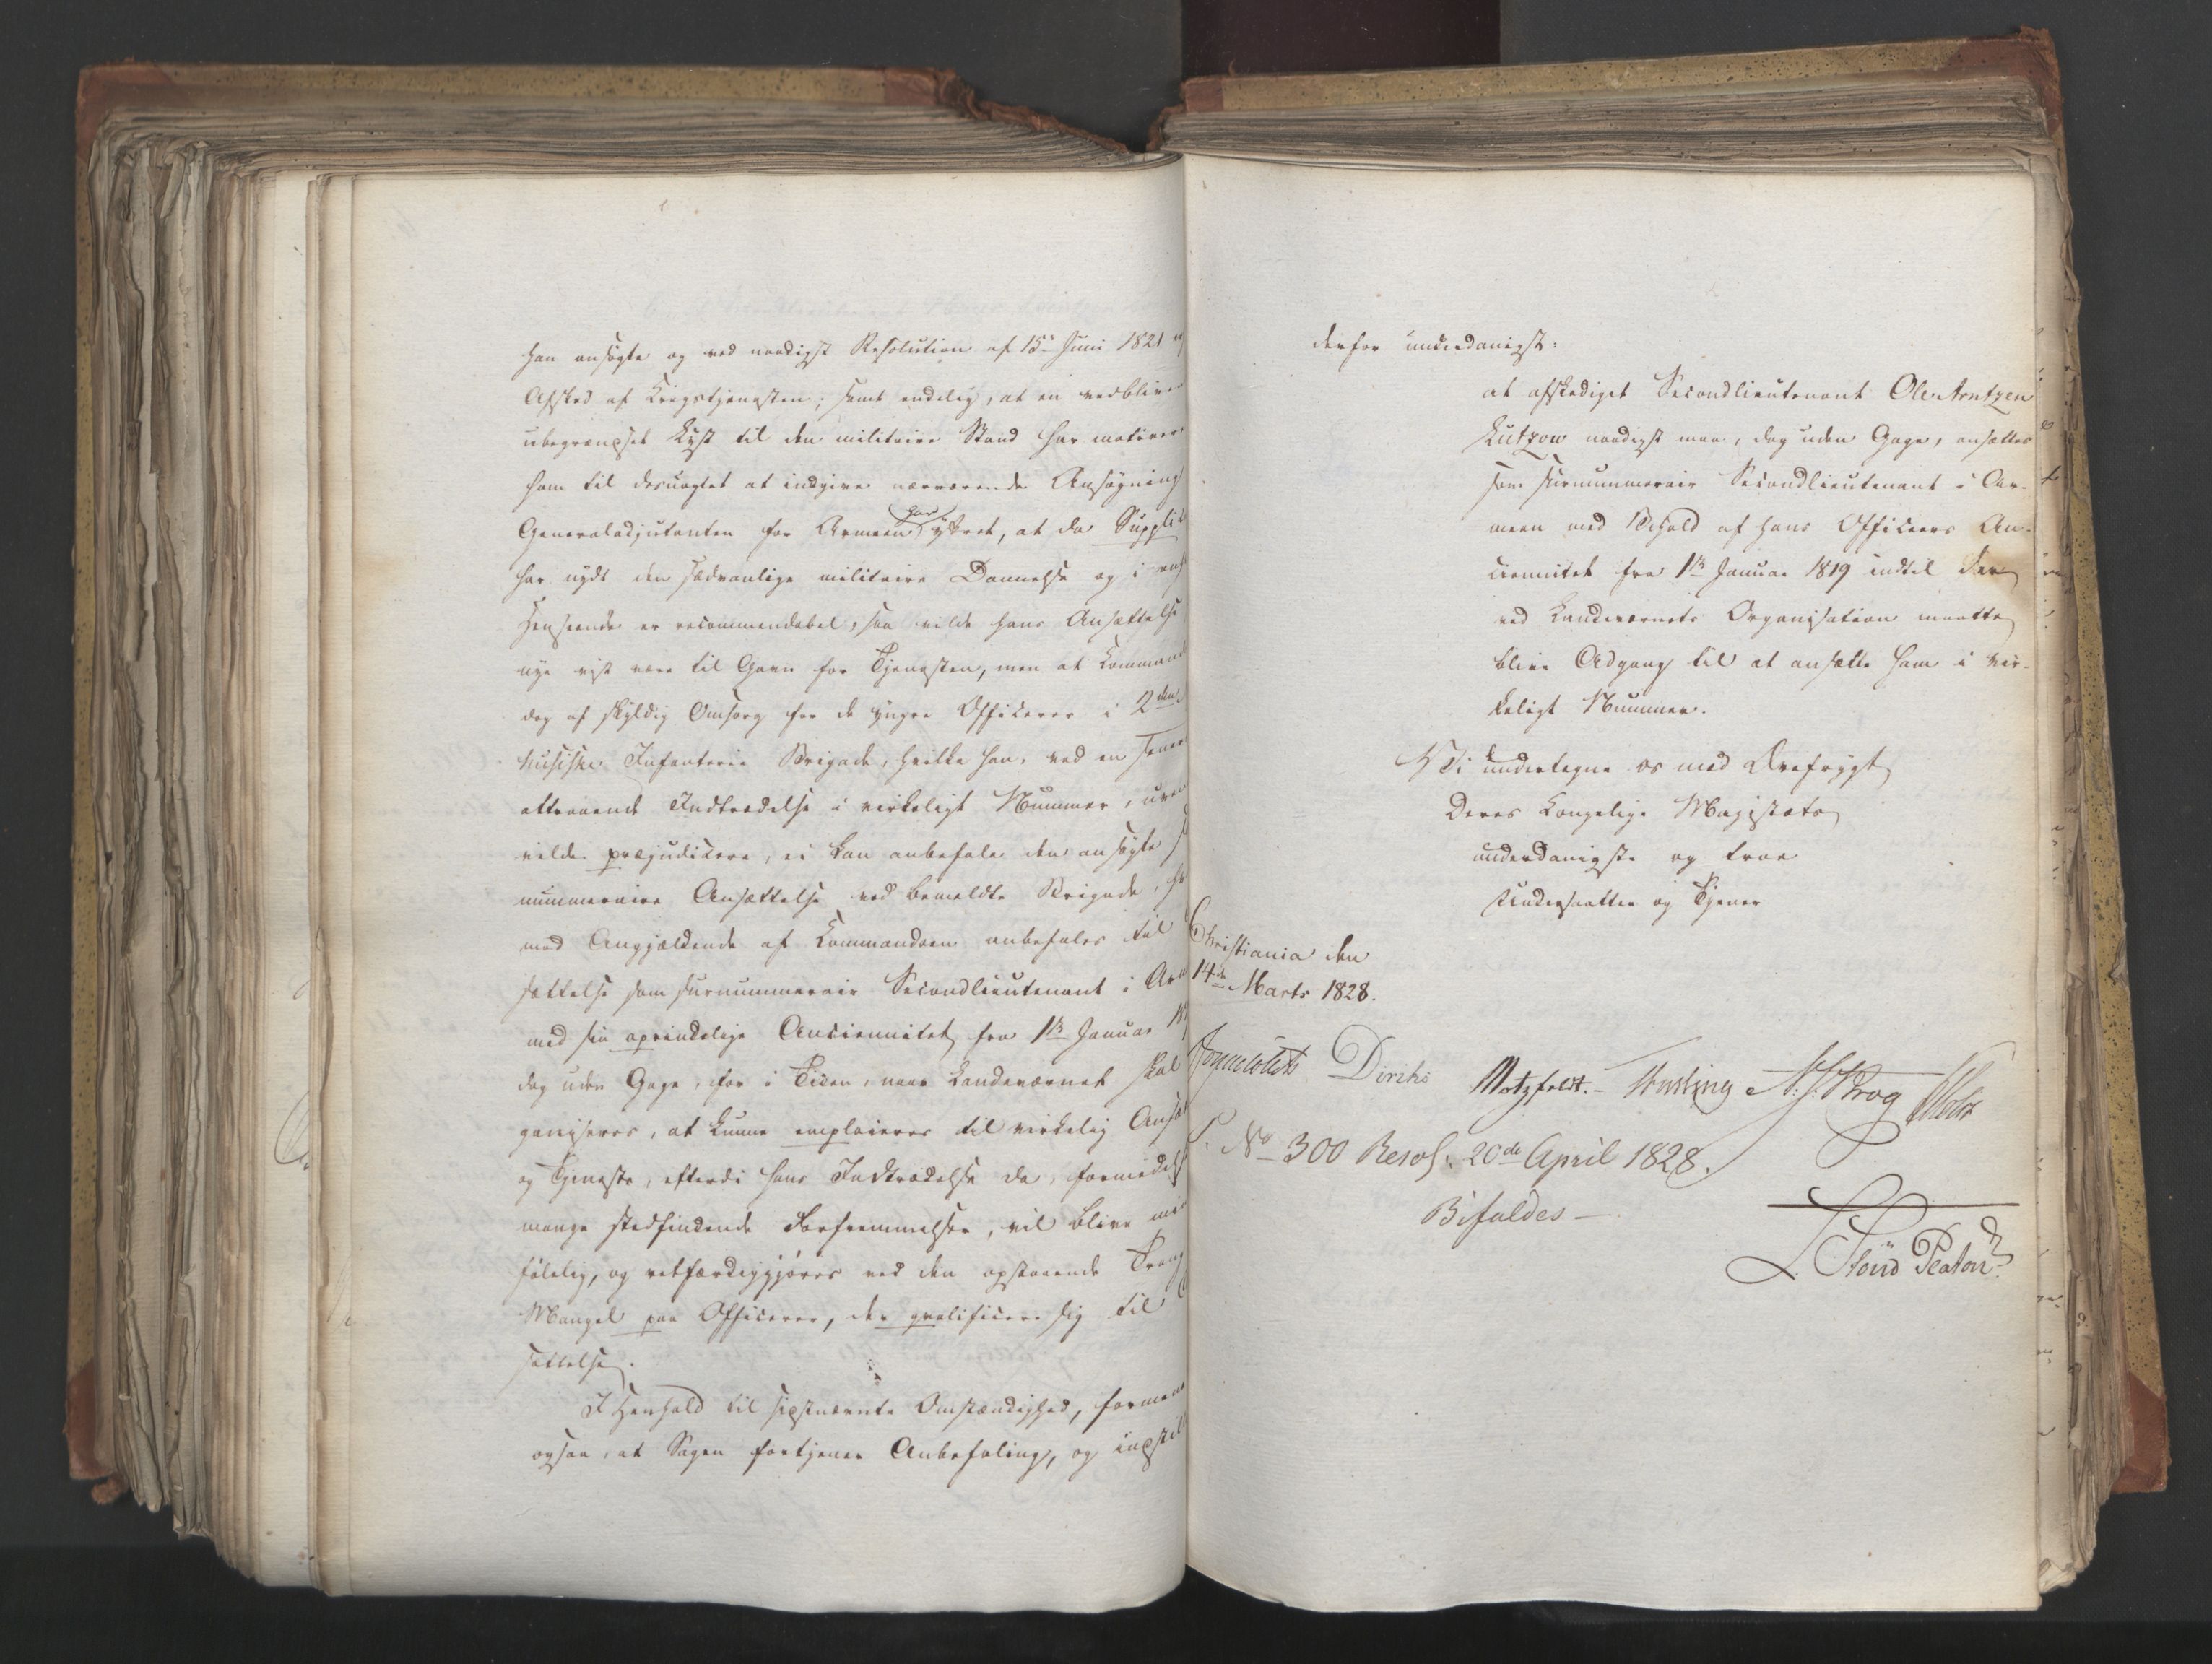 han ansøgte og ved naadigst Resolution af 15de Juni 1821
Afsked af Krigstjenesten; samt endelig, at en vedbliven
ubegrændset Lyst til den militaire Stand har motiveret
ham til desuagtet at indgive nærværende Ansøgning
Generaladjutanten for Armeen har yttret, at da Supplic
har nydt den sædvanlige militaire Dannelse og i
Henseende er recommendabel, saa vilde hans Ansættelse
nye vist være til Gavn for Tjenesten, men at Command
dog af skyldig Omsorg for de yngre Officerer i 2den
husiske Infanterie Brigade, hvilke han, ved en
attraaende Indtrædelse i virkeligt Nummer,
vilde præjudicere, ei kan anbefale den ansøgte
nummeraire Ansættelse ved bemeldte Brigade,
mod Angjældende af Commandoen anbefales til
sættelse som surnummerair Secondlieutenant i Ar
med sin oprindelige Anciennitet fra 1ste Januar
dog uden Gage, for i Tiden, naar Landeværnet skal
ganiseres, at kunne emploieres til virkelig Ansæt
og Tjeneste, efterdi hans Indtrædelse da, formedelst
mange stedfindende Forfremmelser, vil blive
følelig, og retfærdiggjøres ved den opstaaende Trang
Mangel paa Officerer, der qvalificere sig til
sættelse.
I Henhold til sidstnævnte Omstændighed, formene
ogsaa, at Sagen fortjener Anbefaling, og indstil
derfor underdanigst:
at afskediget Secondlieutenant Ole Arntzen
Lützow naadigst maa, dog uden Gage, ansættes
som surnummerair Secondlieutenant i Ar-
meen med Behold af hans Officeers An-
ciennitet fra 1ste Januar 1819 indtil der
ved Landeværnets Organisation maatte
blive Adgang til at ansætte ham i vir-
keligt Nummer.
Vi undertegne os med Ærefrygt
Deres Kongelige Majestæts
underdanigste og troe
Undersaatter og Tjener
Christiania den
14de Marts 1828.
Diriks Motzfeldt. Fasting N. J. Krog Holst
No 300 Resol: 20de April 1828.
Bifaldes —